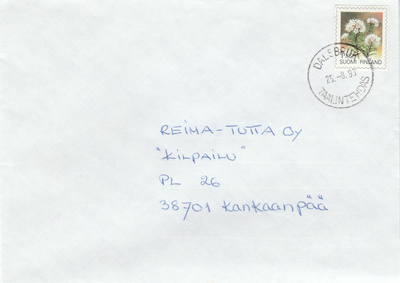 DALSBRUK
SUOMI FINLAND
TAALINTEHDAS
REIMA-TUTTA OY
"KILPAILU"
PL 26
38701 Kankaanpää